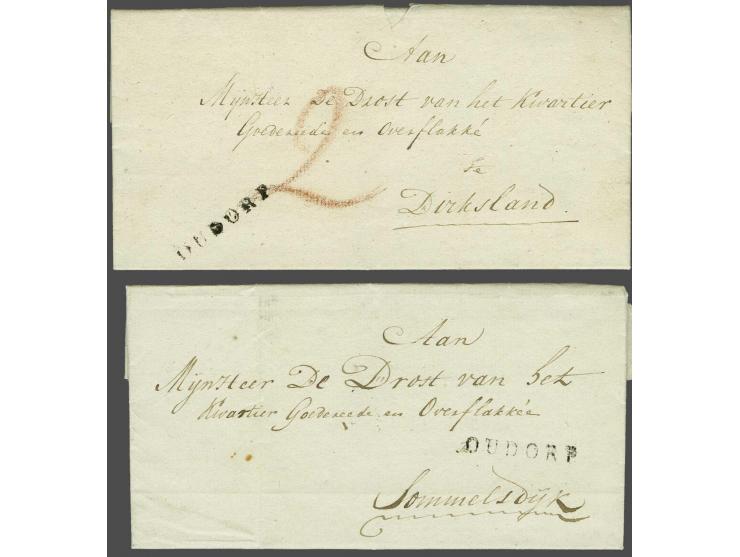 Aan
MijnHeer De Drost van het Kwartier
Goedereede en Overflakké
te
2
OUDORP
Dirksland.
Aan
MijnHeer De Drost van het
Kwartier Goedereede en Overflakkée
OUDORP
Sommelsdijk